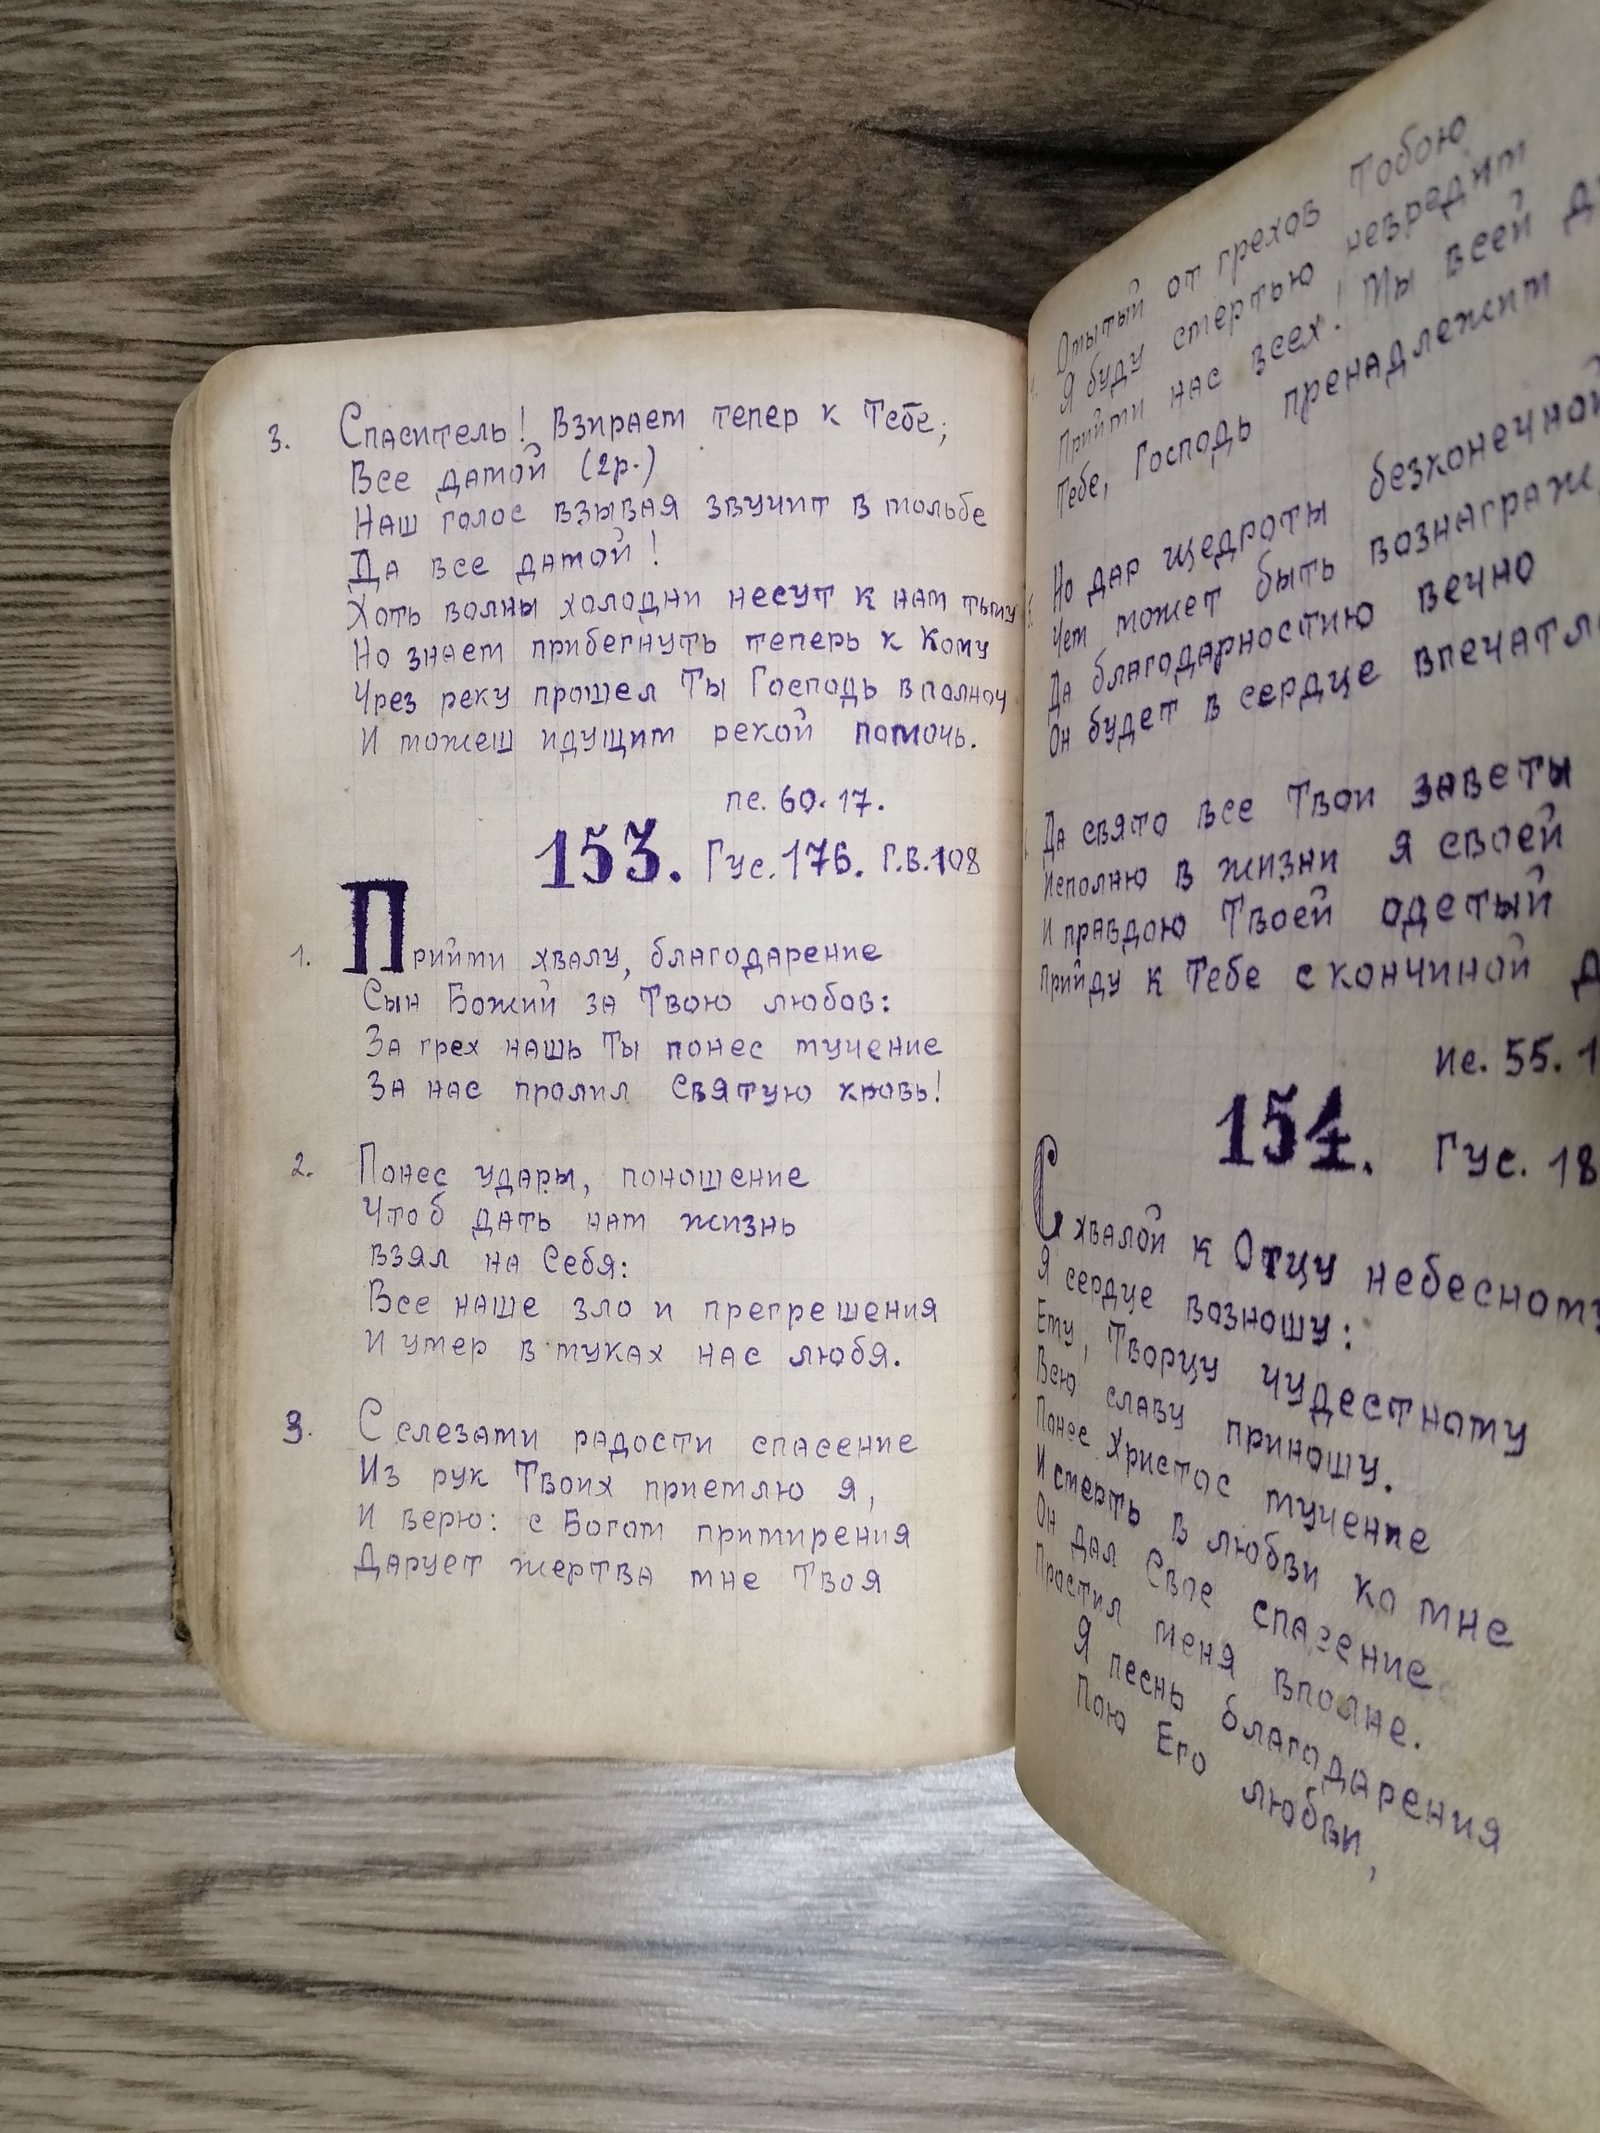 3. Спаситель! Взираем тепер к Тебе;
Все датой (2р.)
Наш голос взывая звучит в мольбе
Да все датой!
Хоть волны холодни несут к нам тьму
Но знаем прибегнуть теперь к Кому
Чрез реку прошел Ты Господь в полноч
И можеш идущим рекой помочь.
пс. 60.17.
153. Гус. 176. Г.В.108
1. Прийми хвалу, благодарение
Сын Божий за Твою любов:
За грех нашь Ты понес мучение
За нас пролил Святую кровь!
2. Понес удары, поношение
Чтоб дать нам жизнь
взял на Себя:
Все наше зло и прегрешения
И умер в муках нас любя.
3. С слезами радости спасение
Из рук Твоих приемлю я,
И верю: с Богом примирения
Дарует жертва мне Твоя
Омытый от грехов Тобою
Я буду смертью невредим
Прийми нас всех! Мы всей
Тебе, Господь пренадлежим
Но дар щедроты безконечной
Чем может быть вознаграж
Да благодарностию вечно
Он будет в сердце впечатл
Да свято все Твои заветы
Исполню в жизни я своей
И правдою Твоей одетый
Прийду к Тебе с кончиной
Пс. 55. 1
154. Гус. 18
С хвалой к Отцу небесному
Я сердце возношу:
Ему, Творцу чудестному
Всю славу приношу.
Понес Христос мучение
И смерть в любви ко мне
Он дал Свое спасение
Простил меня вполне.
Я песнь благодарения
Пою Его любви,